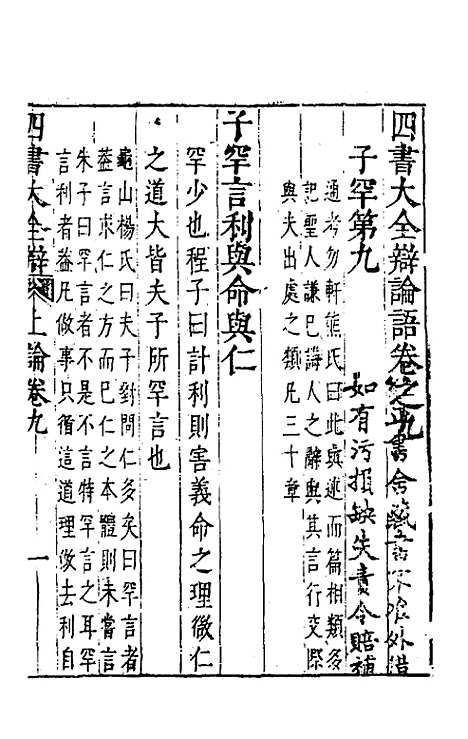 四書大全辯論語卷之九
書舍藏
外借
如有污損缺失責令賠補
子罕第九
通考勿軒熊氏曰此與述而篇相類多
記聖人謙己誨人之辭與其言行交際
與夫出處之類凡三十章
子罕言利與命與仁
罕少也程子曰計利則害義命之理微仁
之道大皆夫子所罕言也
龜山楊氏曰夫子對問仁多矣曰罕言者
蓋言求仁之方而已仁之本體則未嘗言
朱子曰罕言者不是不言特罕言之耳罕
言利者蓋凡做事只循這道理做去利自
四書大全辯 上論卷九 一